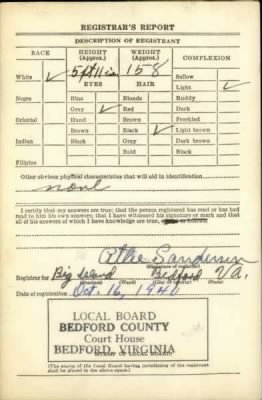 REGISTRAR'S REPORT
DESCRIPTION OF REGISTRANT
RACE HEIGHT (Approx.) WEIGHT (Approx.) COMPLEXION
5 ft 11 in 158 Sallow
White ✓ EYES HAIR Light ✓
Negro Blue Blonde Ruddy
Gray ✓ Red Dark
Oriental Hazel Brown Freckled
Brown Black ✓ Light brown
Indian Black Gray Dark brown
Bald Black
Filipino
Other obvious physical characteristics that will aid in identification
none
I certify that my answers are true; that the person registered has read or has had
read to him his own answers; that I have witnessed his signature or mark and that
all of his answers of which I have knowledge are true,
Sanderson
(Signature of registrar)
Registrar for Big Island Bedford Va.
(Precinct) (Ward) (City or county) (State)
Date of registration Oct. 16, 1940
LOCAL BOARD
BEDFORD COUNTY
Court House
BEDFORD, VIRGINIA
(STAMP OF LOCAL BOARD)
(The stamp of the Local Board having jurisdiction of the registrant
shall be placed in the above space.)